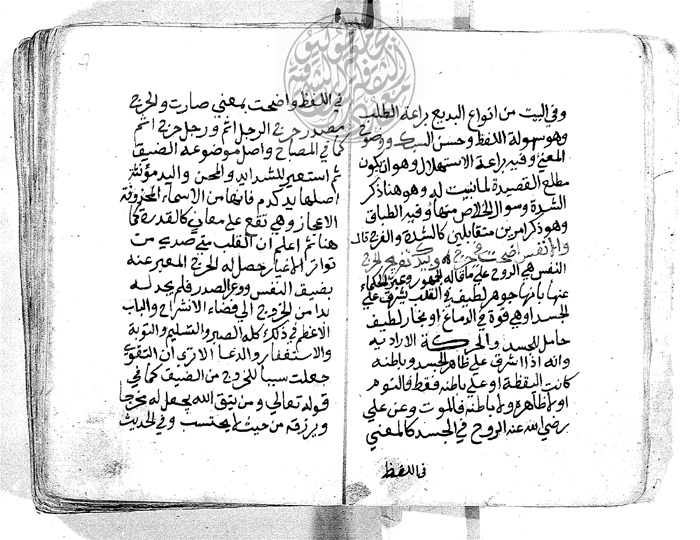 وفي البيت من انواع البديع براعة الطلب
وهو سهولة اللفظ وحسن السبك ووضوح
المعني وفيه براعة الاستهلال وهو ان يكون
مطلع القصيدة لما بنيت له وهو هنا ذكر
الشدة وسوال الخلاص منها وفيه الطباق
وهو ذكر امرين متقابلين كالشدة والفرج قال
والانفس اضحت في حرج وبيدك تفريج الحرج
النفس هي الروح علي ما قاله الجمهور وعبر الحكماء
عنها بانها جوهر لطيف في القلب يشرق علي
الجسد اوهي قوة في الدماغ او بخار لطيف
حامل للحسد والحركة الارادية
وانه اذا اشرق علي ظاهر الجسد وباطنه
كانت اليقظة او علي باطنه فقط فالنوم
اولا ظاهره ولا باطنه فالموت وعن علي
رضي الله عنه الروح في الجسد كالمعني
في اللفظ
في اللفظ واضحت بمعني صارت والحرج
مصدر حرج الرجل اثم ورجل حرج اثم
كما في المصباح واصل موضوعه الضيق
ثم استعير للشدايد والمحن واليد مؤنثة
اصلها يدي كدم فانها من الاسماء المحذوفة
الاعجاز وهي تقع علي معاني كالقدرة كما
هنا ثم اعلم ان القلب متي صدي من
تواتر الاغيار حصل له الحرج المعبر عنه
بضيق النفس ووعر الصدر فلم يجد له
بدا من الخروج الي فضاء الانشراح والباب
الاعظم في ذلك كله الصبر والتسليم والتوبة
والاستغفار والدعا الا تري ان التقوي
جعلت سببا للخروج من الضيق كما في
قوله تعالي ومن يتق الله يجعل له مخرجا
ويرزقه من حيث لا يحتسب وفي الحديث